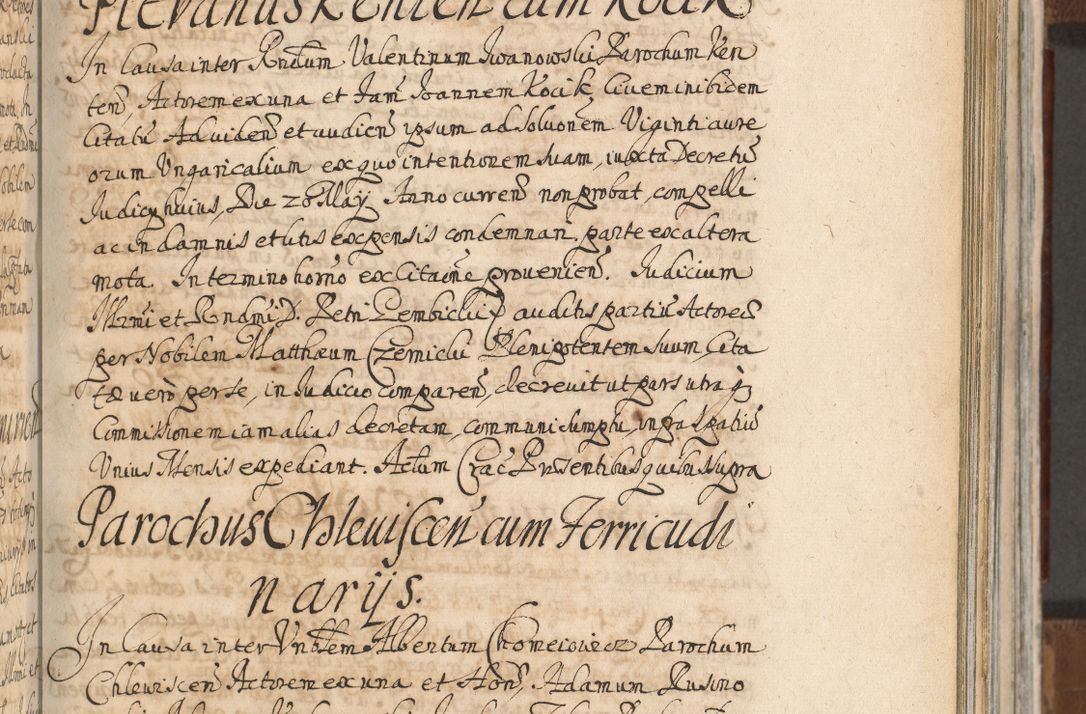 Plebanus Kenten cum Kocik
In Causa inter Rndum Valentinum Iwanowski Parochum Ken
ten, Actorem ex una et Fam Ioannem Kocik Civem inibidem
Citatu Ad viden et audien ipsum ad Solvonem Viginti aure
orum Ungaricalium ex quo intentionem suam, iuxta Decretu
Iudicy huius, Die 20 May Anno curren non probat, compelli
ac in damnis et litis expensis condemnari, parte ex altera
mota. In termino horno ex Citaone provenien. Iudicium
Illrmi et Rndmi D. Petri Gembicki auditis partiu Actorea
per Nobilem Matthæum Czernicki Plenipotentem suum, Cita
tæ vero per se, in Iudicio comparen, decrevit ut pars utraq
Commissionem iam alias decretam, communi sumptu, infra spatiu
Unius Mensis expediant. Actum Crac Præsentibus quibus supra
Parochus Chleviscen cum Ferricudi
narijs.
In Causa inter Vnblem Albertum Chomeiowicz Parochum
Chleviscen Actorem ex una et Hon, Adamum Rusino